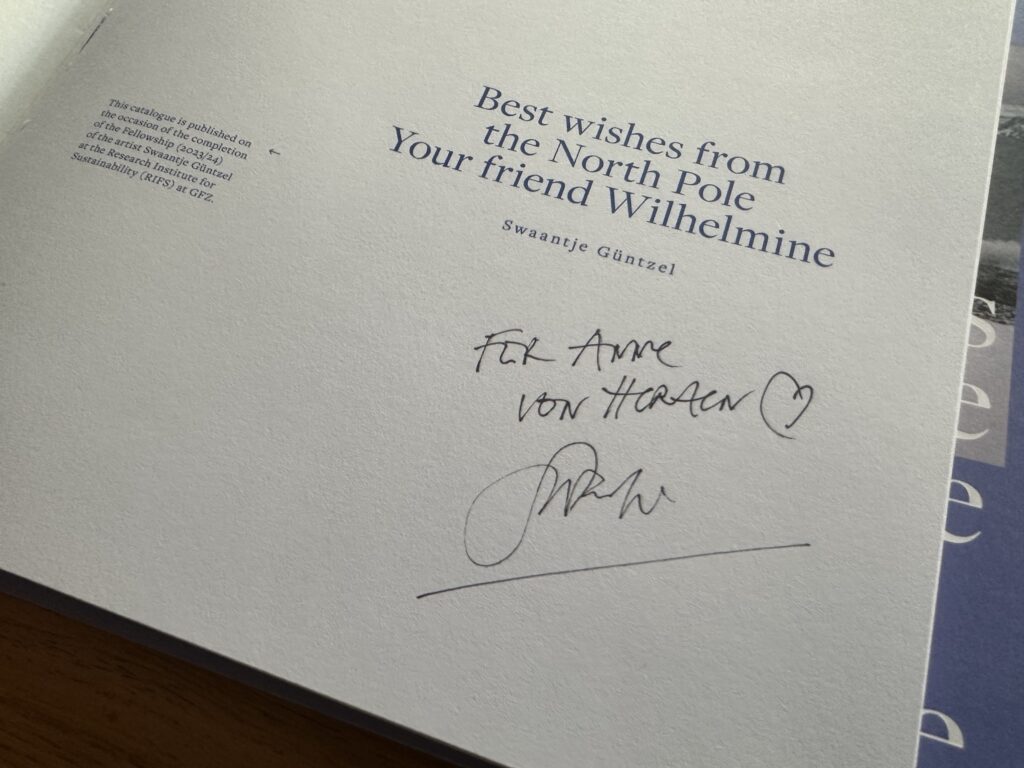 This catalogue is published on
the occasion of the completion
of the Fellowship (2023/24)
of the artist Swaantje Güntzel
at the Research Institute for
Sustainability (RIFS) at GFZ.
←
Best wishes from
the North Pole
Your friend Wilhelmine
Swaantje Güntzel
FÜR ANNE
VON HERZEN
s
e
e
e